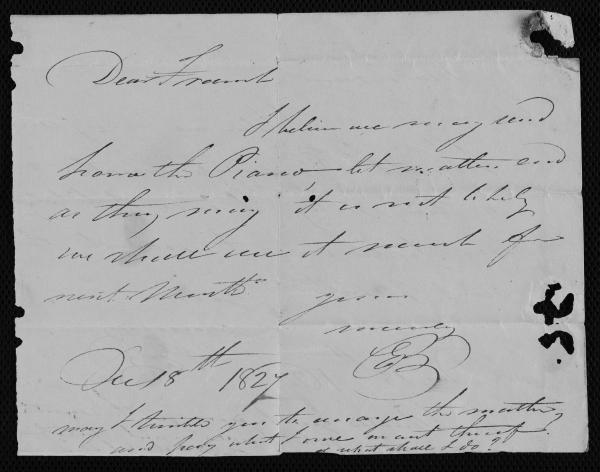 Dear Friend
I believe we may send
home the Piano, let matters end
as they may it is not likely
we shall use it much for
next Month
yours
sincerely
EB
Dec 18th 1827
may I trouble you to arrange the matter,
and pay what I owe
or what shall I do?